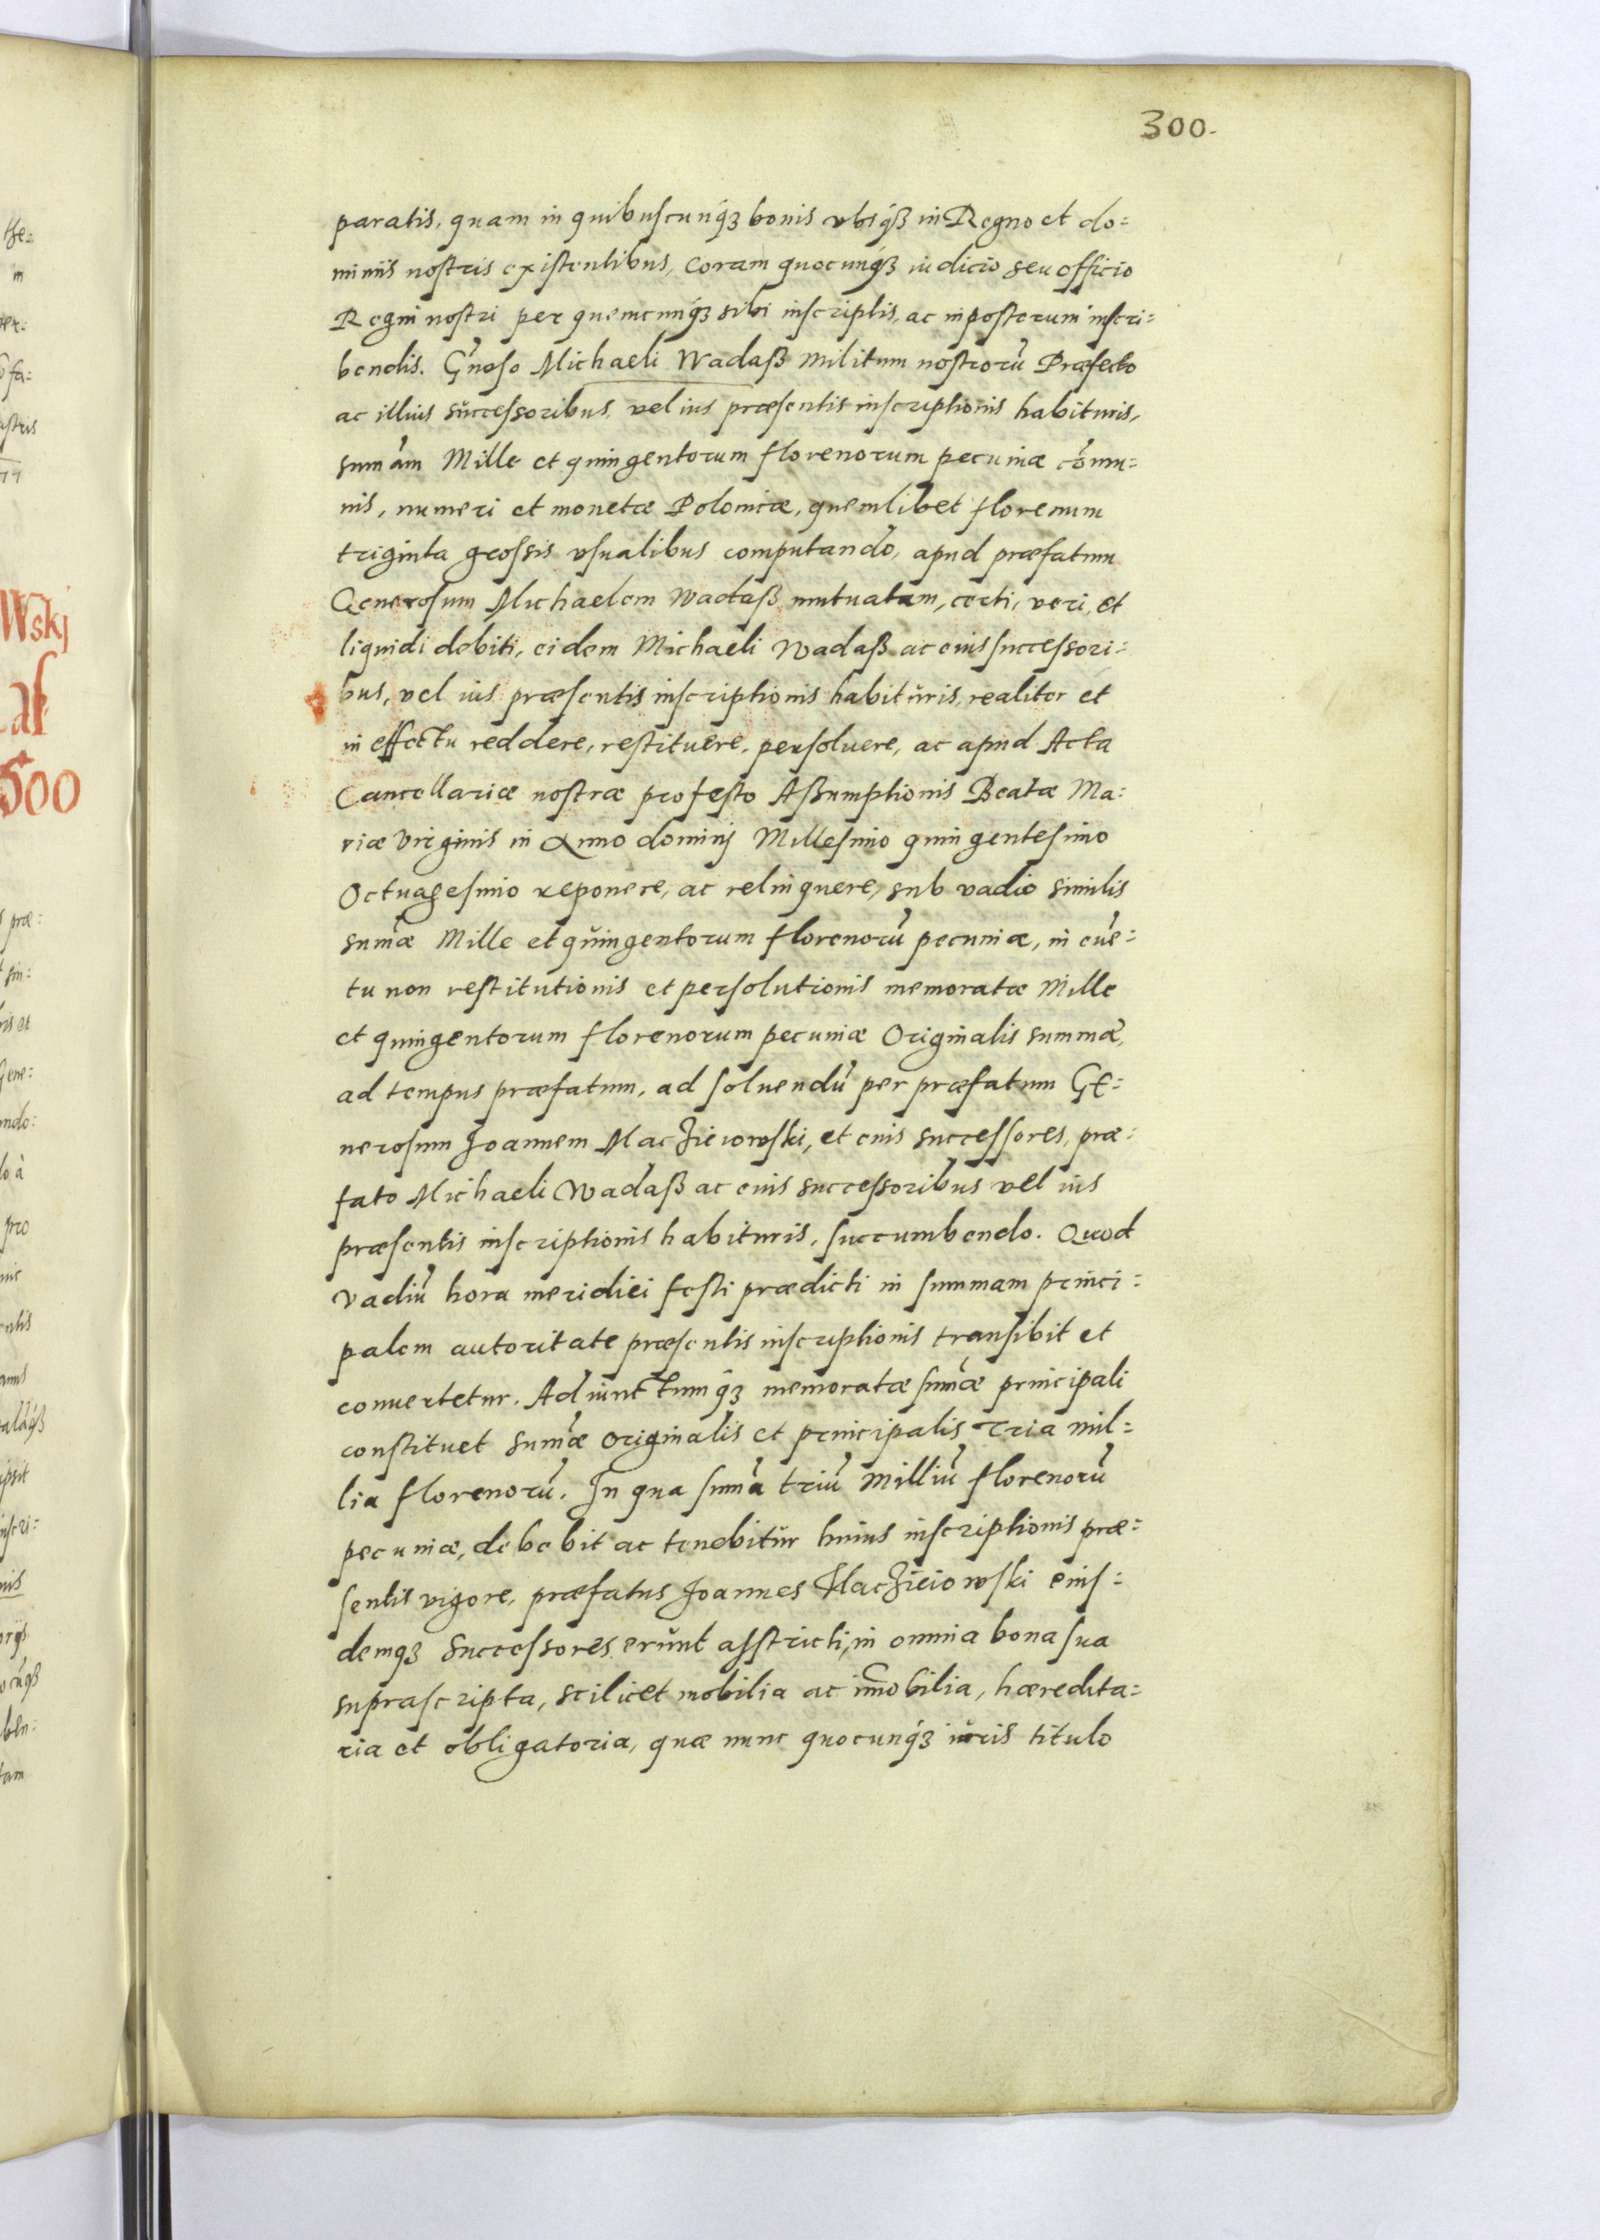 300.
paratis, quam in quibuscunq́ꝫ bonis vbiq́ꝫ in Regno et do=
minijs nostris existentibus, coram quocunq́ꝫ iudicio seu officio
Regni nostri per quemcunq́ꝫ sibi inscriptis, ac inposterum inscri=
bendis. Gñoso Michaeli Wadaß Militum nostrorū Præfecto
ac illius successoribus, vel ius præsentis inscriptionis habituris,
sum̄am Mille et quingentorum florenorum pecuniæ com̄u=
nis, numeri et monetæ Polonicæ, quemlibet florenum
triginta grossis vsualibus computando, apud præfatum
Generosum Michaelem Wadaß mutuatam, certi, veri, et
liquidi debiti, eidem Michaeli Wadaß ac eius successori=
bus, vel ius præsentis inscriptionis habituris, realiter et
in effectu reddere, restituere, persoluere, ac apud Acta
Cancellariæ nostræ pro festo Aßumptionis Beatæ Ma=
riæ Virginis in Anno dominj Millesimo quingentesimo
Octuagesimo reponere, ac relinquere, sub vadio similis
sum̄æ Mille et quingentorum florenorū pecuniæ, in euē=
tu non restitutionis et persolutionis memoratæ Mille
et quingentorum florenorum pecuniæ Originalis summæ,
ad tempus præfatum, ad soluendū per præfatum Ge=
nerosum Joannem Macżieiowski, et eius successores, præ=
fato Michaeli Wadaß ac eius successoribus vel ius
præsentis inscriptionis habituris, succumbendo. Quod
vadiū hora meridiei festi prædicti in summam princi=
palem autoritate præsentis inscriptionis transibit et
conuertetur. Adiunctumq́ꝫ memoratæ sum̄æ principali
constituet sum̄æ originalis et principalis Tria mil=
lia florenorū. In qua sum̄a triū Milliū florenorū
pecuniæ, debebit ac tenebitur huius inscriptionis præ=
sentis vigore, præfatus Joannes Macżieiowski eius=
demqꝫ successores erunt asstricti, in omnia bona sua
suprascripta, scilicet mobilia ac im̄obilia, hæredita=
ria et obligatoria, quæ nunc quocunq́ꝫ iuris titulo
Wskj
500